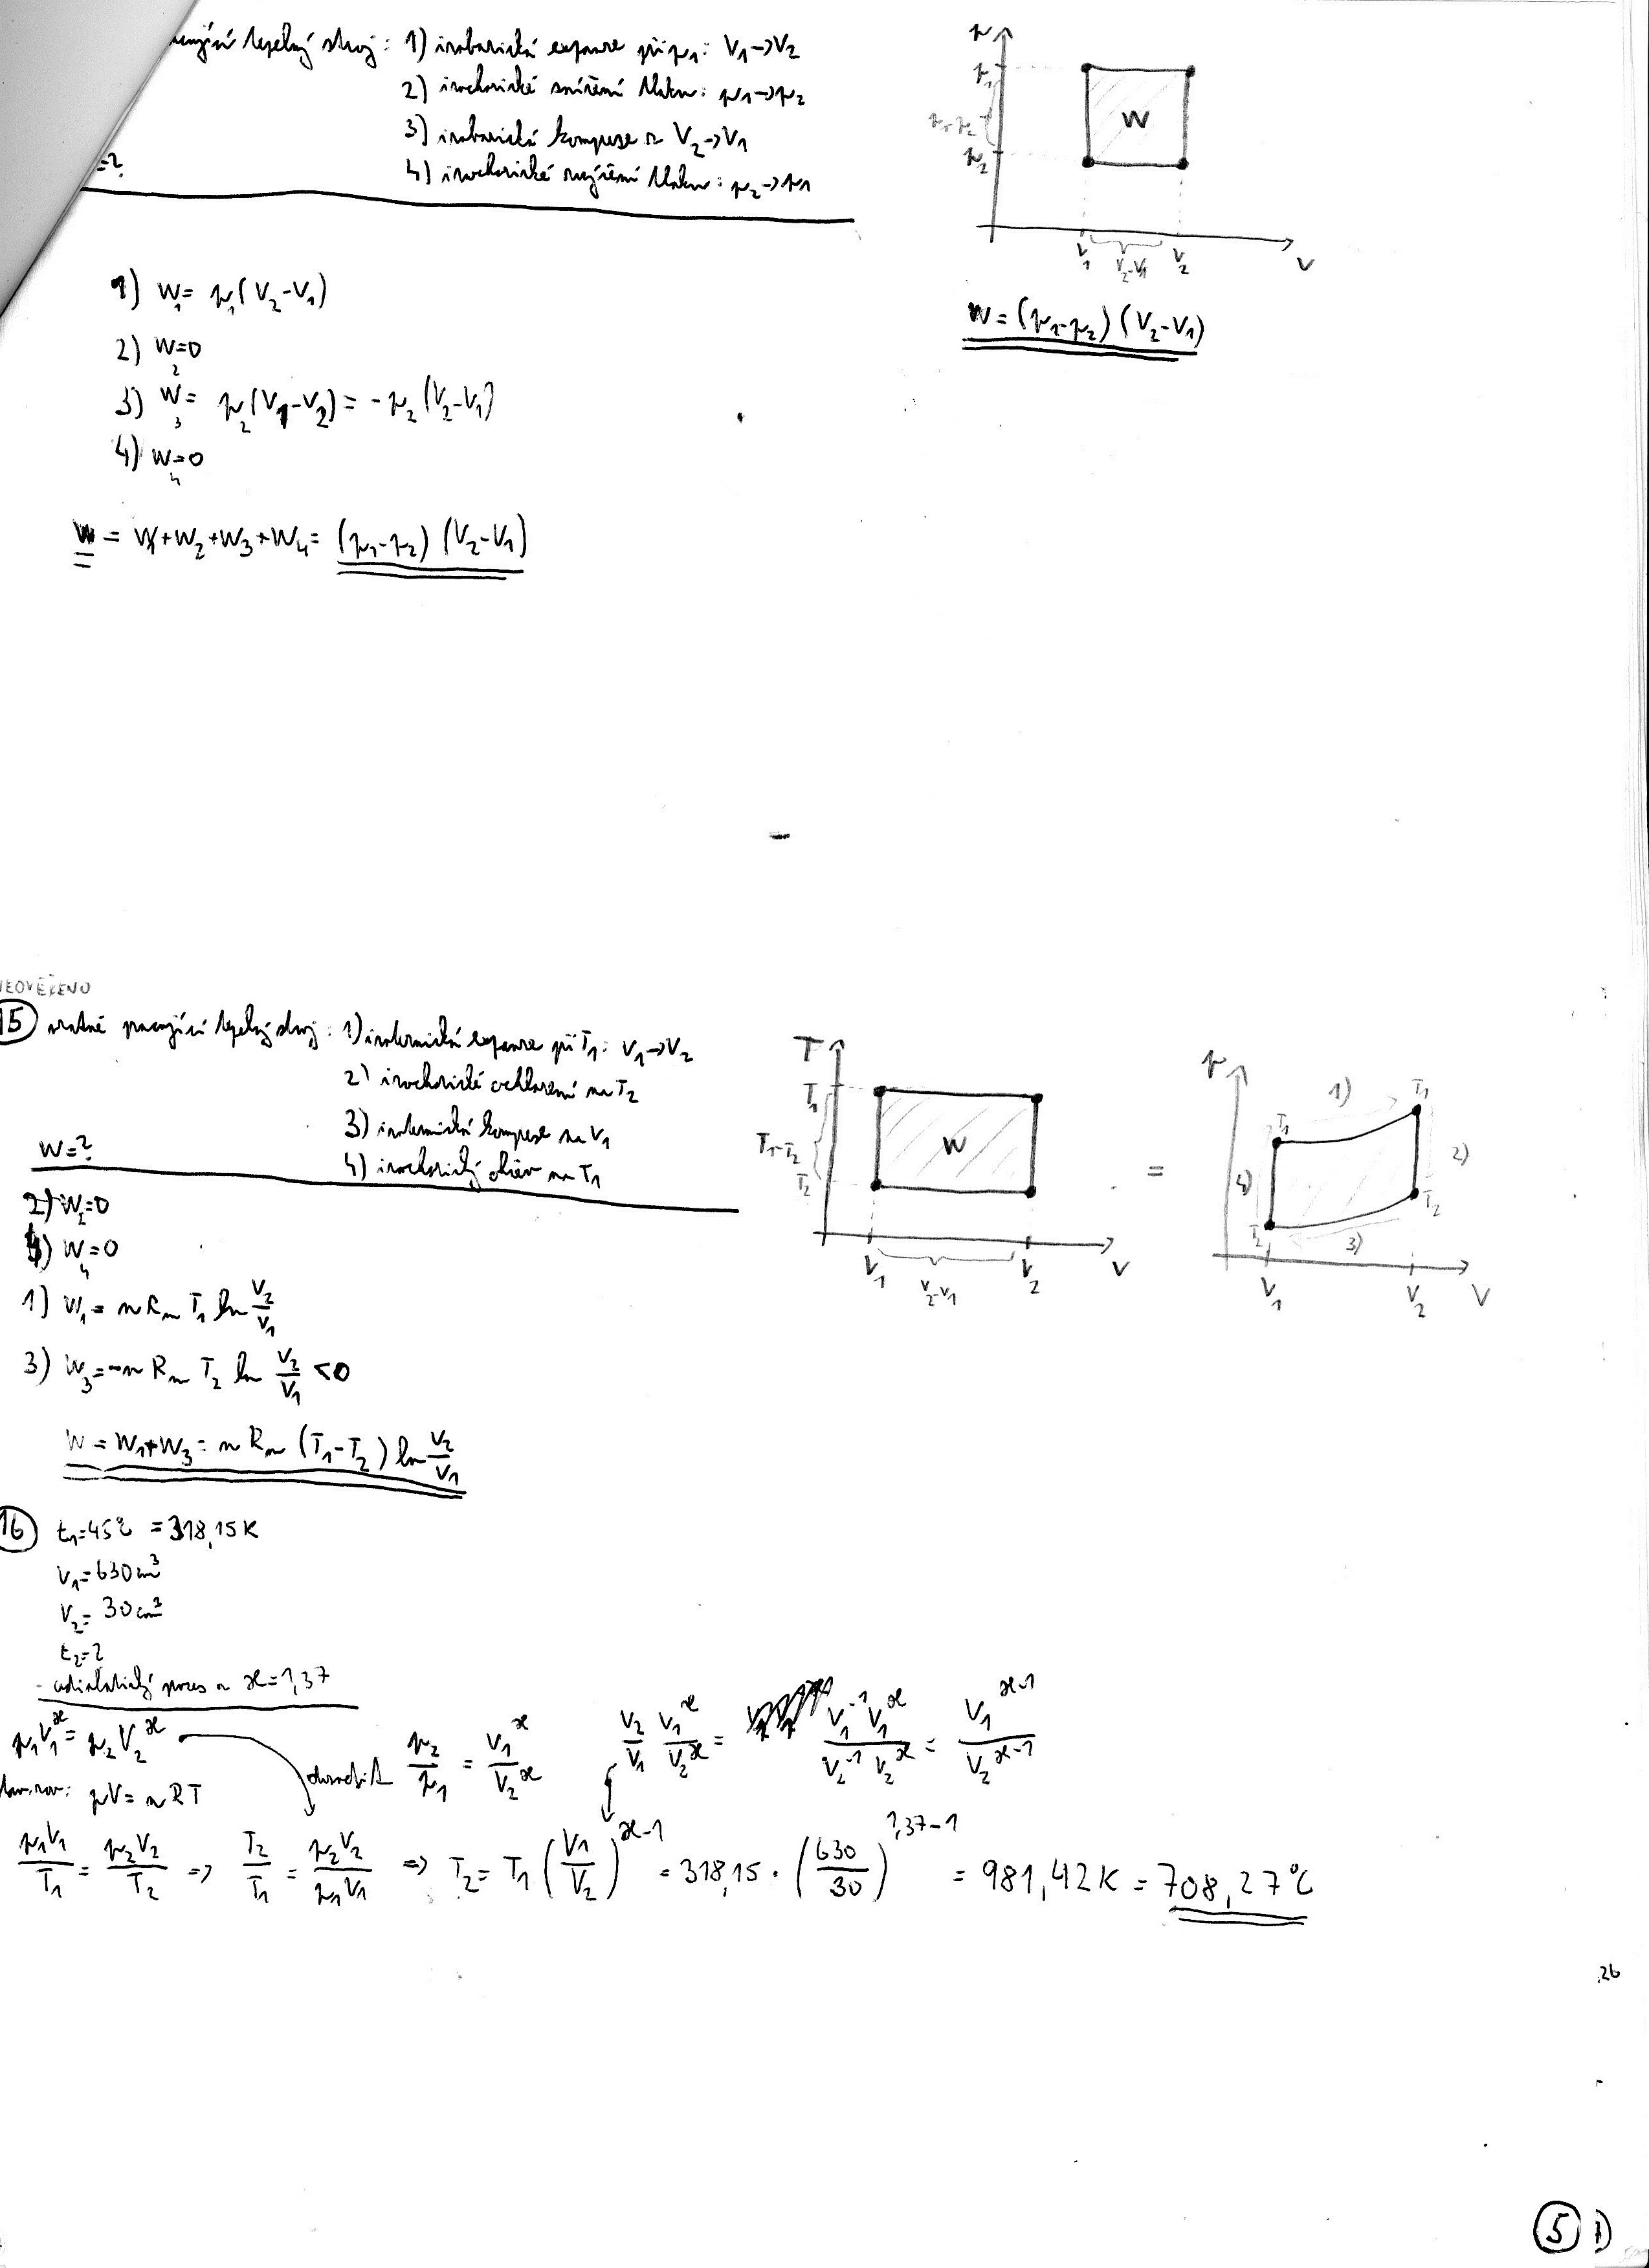 tepelný stroj: 1) izobarická expanze při p₁: V₁→V₂
2) izochorické snížení tlaku: p₁→p₂
3) izobarická kompese z V₂→V₁
=?
4) izochorické zvýšení tlaku: p₂→p₁
p
p₁
p₁-p₂
p₂
W
V₁ V₂-V₁ V₂ V
W=(p₁-p₂)(V₂-V₁)
1) W₁= p₁(V₂-V₁)
2) W₂=0
3) W₃= p₂(V₁-V₂)= -p₂(V₂-V₁)
4) W₄=0
W = W₁+W₂+W₃+W₄= (p₁-p₂)(V₂-V₁)
NEOVĚŘENO
15) vratně pracující tepelný stroj: 1) izotermická expanze při T₁: V₁→V₂
2) izochorické ochlazení na T₂
3) izotermická kompese na V₁
W=?
4) izochorický ohřev na T₁
T
T₁
T₁-T₂
T₂
W
V₁ V₂-V₁ V₂ V
=
p
1)
T₁ T₁
2)
4)
T₂ T₂
3)
V₁ V₂ V
2) W₂=0
4) W₄=0
1) W₁= n Rₘ T₁ ln V₂/V₁
3) W₃=-n Rₘ T₂ ln V₂/V₁ <0
W = W₁+W₃= n Rₘ (T₁-T₂) ln V₂/V₁
16) t₁=45°C =318,15K
V₁=630cm³
V₂= 30cm³
t₂=?
- adiabatický proces ϰ=1,37
p₁V₁^ϰ= p₂V₂^ϰ
dosadit p₂/p₁ = V₁^ϰ/V₂^ϰ
V₂/V₁ V₁^ϰ/V₂^ϰ = V₁⁻¹V₁^ϰ/V₂⁻¹V₂^ϰ = V₁^(ϰ-1)/V₂^(ϰ-1)
pV= nRT
p₁V₁/T₁ = p₂V₂/T₂ => T₂/T₁ = p₂V₂/p₁V₁ => T₂= T₁ (V₁/V₂)^(ϰ-1) = 318,15 · (630/30)^(1,37-1) = 981,42K = 708,27°C
26
5